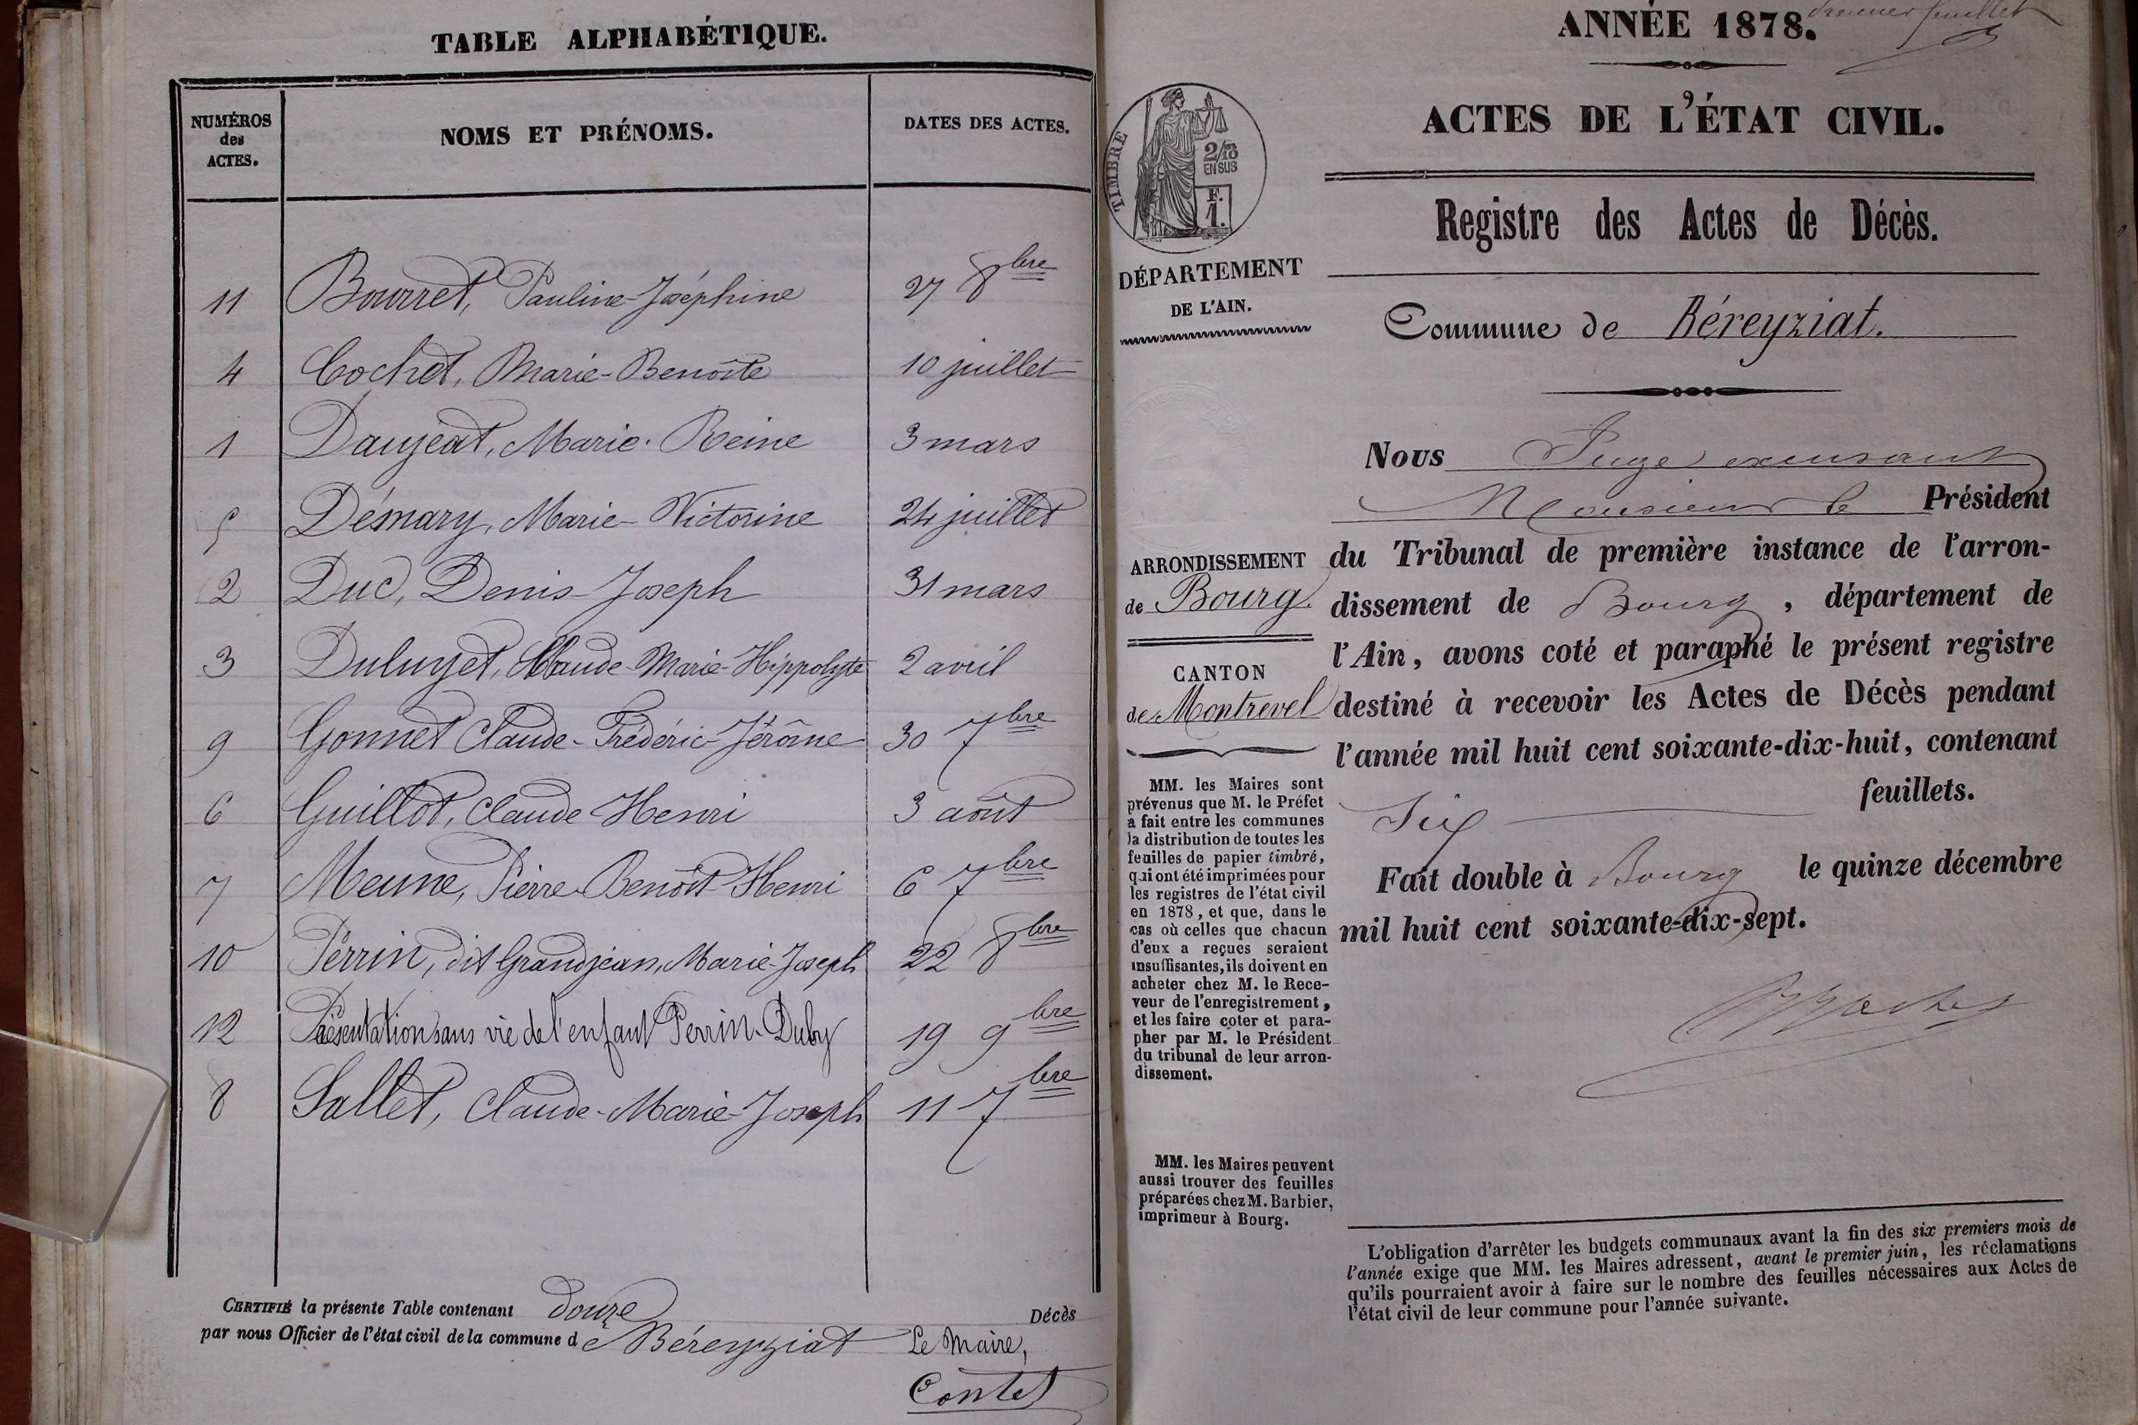 TABLE ALPHABÉTIQUE.
NUMÉROS des ACTES.
NOMS ET PRÉNOMS.
DATES DES ACTES.
11 Bourret, Pauline-Joséphine 27 8bre
4 Cochet, Marie-Benoîte 10 juillet
1 Daujeat, Marie-Reine 3 mars
5 Démary, Marie-Victorine 24 juillet
2 Duc, Denis-Joseph 31 mars
3 Duluyet, Claude-Marie-Hippolyte 2 avril
9 Gonnet Claude-Frédéric-Jérôme 30 7bre
6 Guillot, Claude-Henri 3 août
7 Meune, Pierre-Benoît-Henri 6 7bre
10 Perrin, dit Grandjean, Marie-Joseph 22 8bre
12 Présentation sans vie de l'enfant Perrin-Duby 19 9bre
8 Sallet, Claude-Marie-Joseph 11 7bre
CERTIFIÉ la présente Table contenant douze Décès
par nous Officier de l'état civil de la commune de Béreyziat Le Maire,
Contet
premier feuillet
ANNÉE 1878.
ACTES DE L'ÉTAT CIVIL.
Registre des Actes de Décès.
Commune de Béreyziat.
TIMBRE
2/10
EN SUS
F.
1.
DÉPARTEMENT
DE L'AIN.
ARRONDISSEMENT
de Bourg.
CANTON
de Montrevel
MM. les Maires sont
prévenus que M. le Préfet
a fait entre les communes
la distribution de toutes les
feuilles de papier timbré,
qui ont été imprimées pour
les registres de l'état civil
en 1878, et que, dans le
cas où celles que chacun
d'eux a reçues seraient
insuffisantes, ils doivent en
acheter chez M. le Rece-
veur de l'enregistrement,
et les faire coter et para-
pher par M. le Président
du tribunal de leur arron-
dissement.
MM. les Maires peuvent
aussi trouver des feuilles
préparées chez M. Barbier,
imprimeur à Bourg.
Nous Juge excusant
Monsieur le Président
du Tribunal de première instance de l'arron-
dissement de Bourg, département de
l'Ain, avons coté et paraphé le présent registre
destiné à recevoir les Actes de Décès pendant
l'année mil huit cent soixante-dix-huit, contenant
Six feuillets.
Fait double à Bourg le quinze décembre
mil huit cent soixante-dix-sept.
L'obligation d'arrêter les budgets communaux avant la fin des six premiers mois de
l'année exige que MM. les Maires adressent, avant le premier juin, les réclamations
qu'ils pourraient avoir à faire sur le nombre des feuilles nécessaires aux Actes de
l'état civil de leur commune pour l'année suivante.